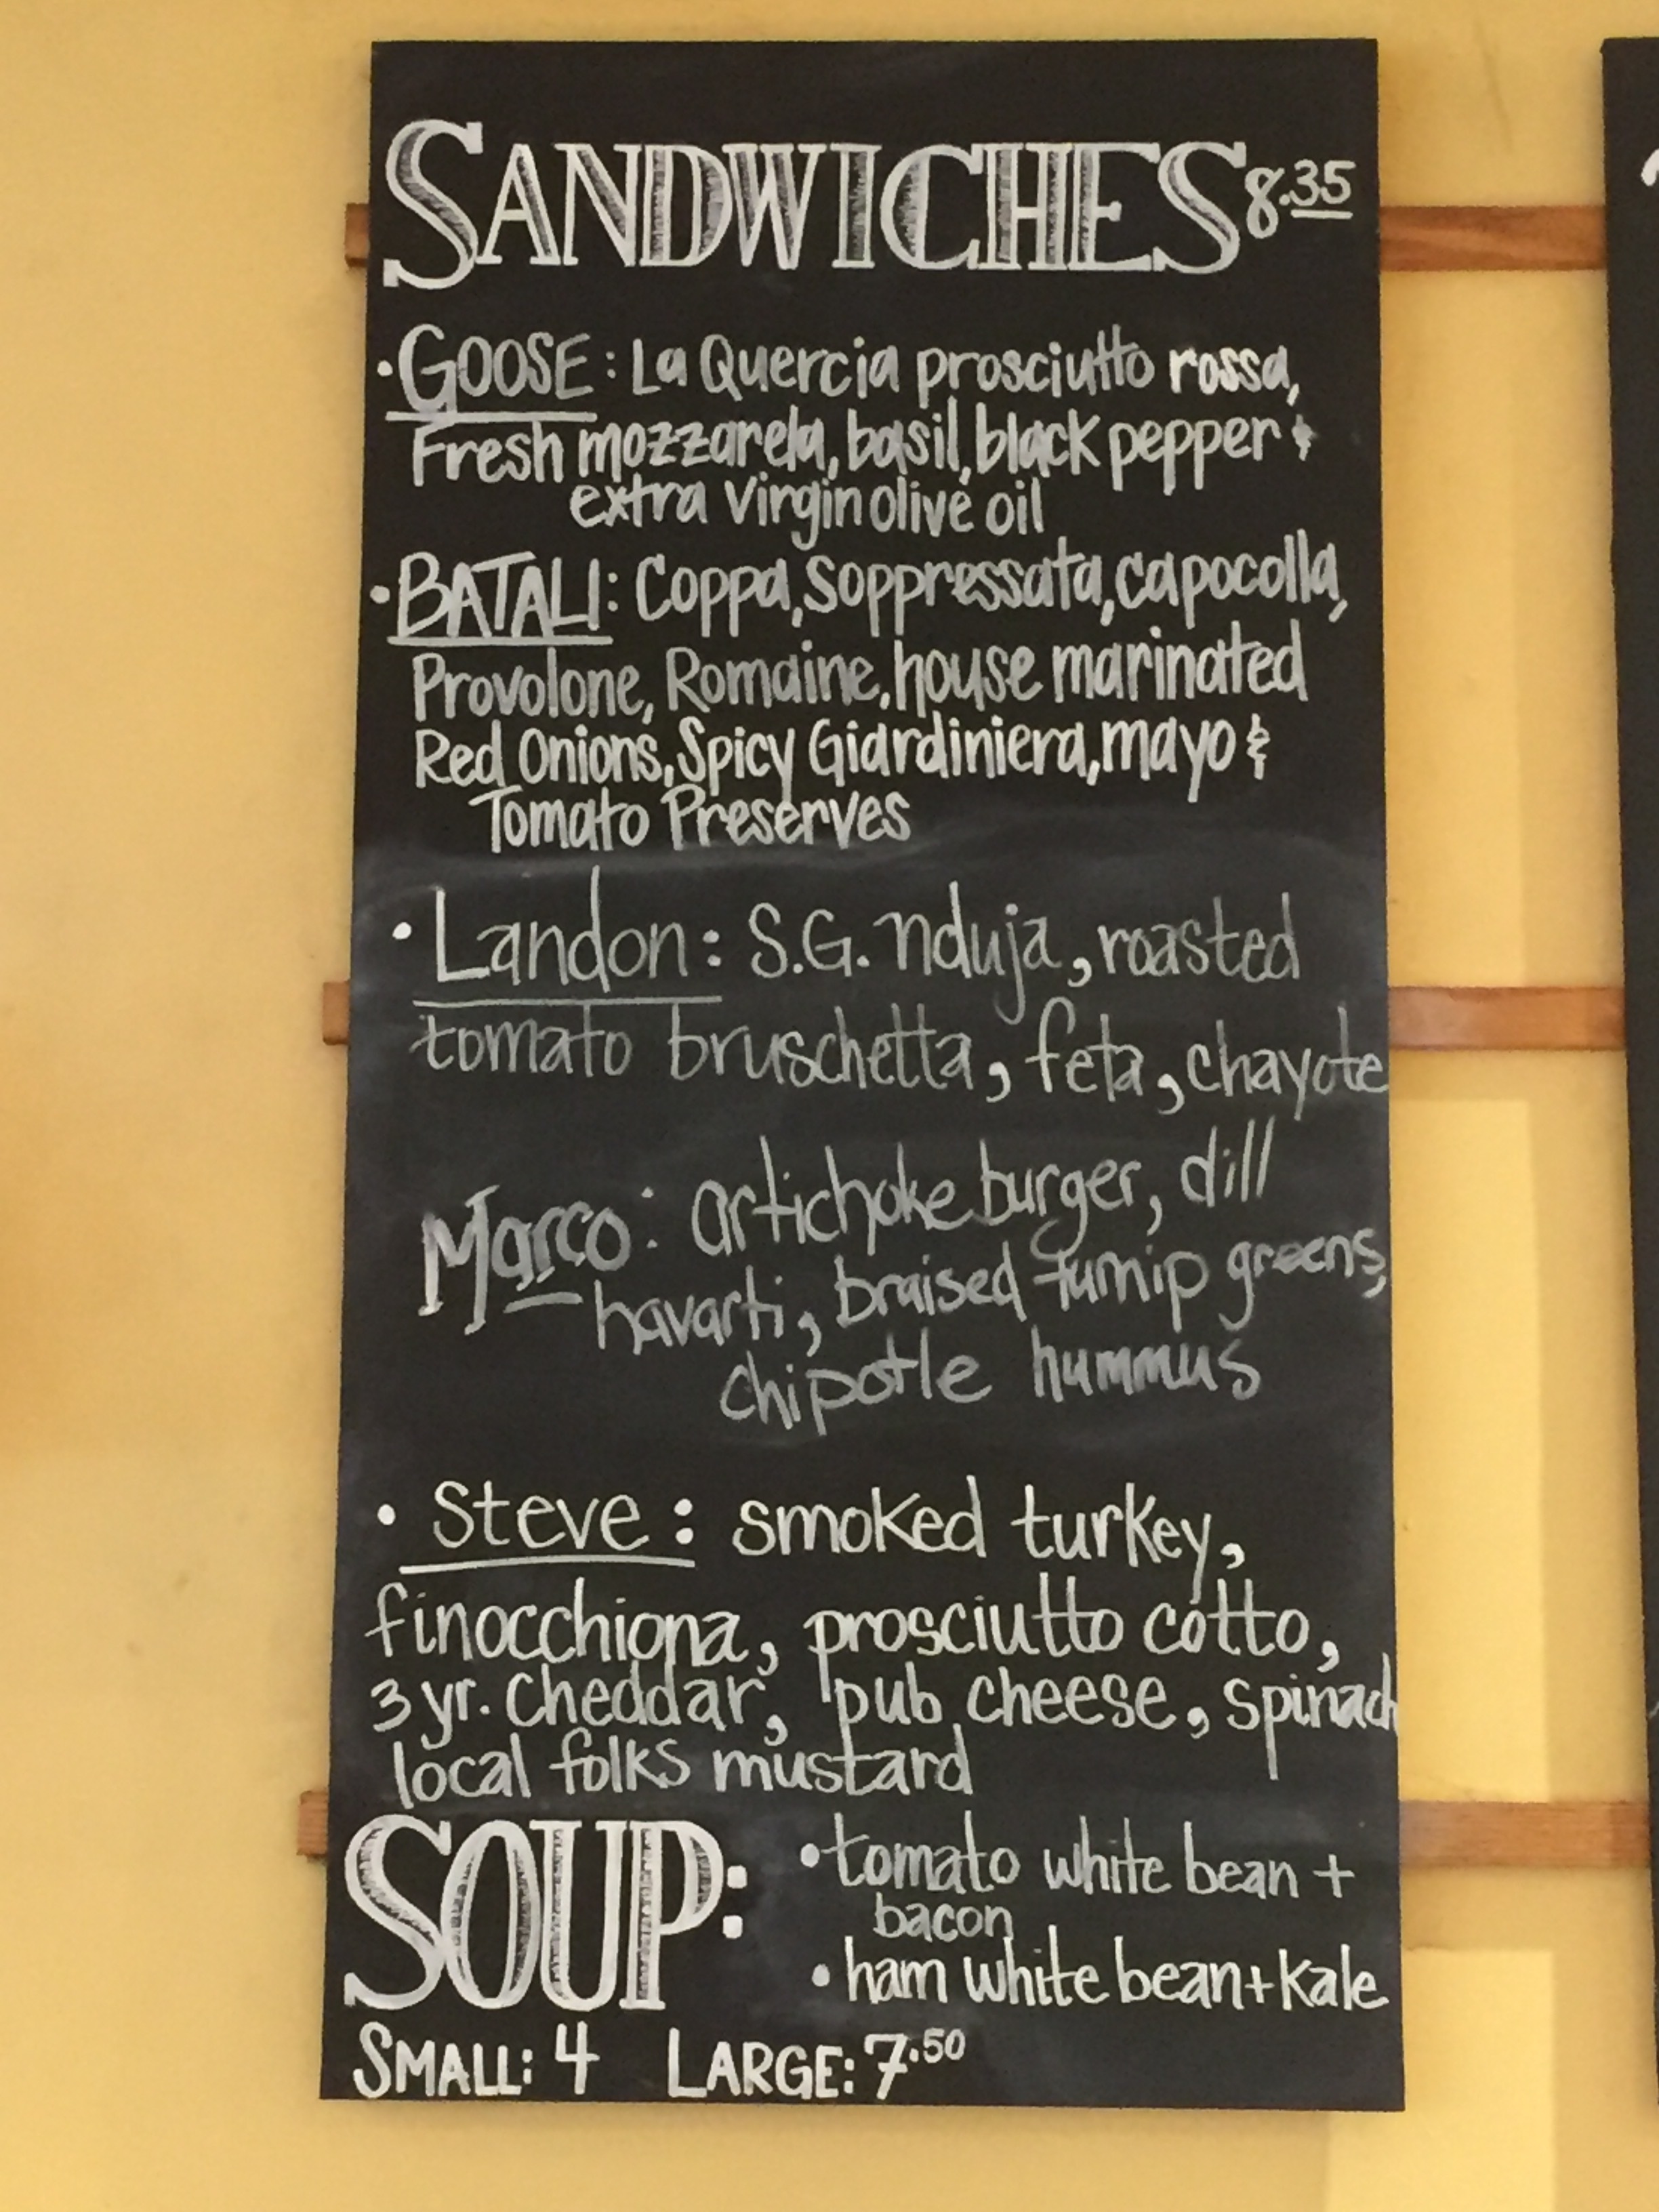 SANDWICHES 8.35
• GOOSE: La Quercia prosciutto rossa,
Fresh mozzarela, basil, black pepper &
extra Virgin olive oil
• BATALI: Coppa, Soppressata, capocolla,
Provolone, Romaine, house marinated
Red Onions, Spicy Giardiniera, mayo &
Tomato Preserves
• Landon: S.G. nduja, roasted
tomato bruschetta, feta, chayote
Marco: artichoke burger, dill
havarti, braised turnip greens,
chipotle hummus
• Steve: smoked turkey,
finocchiona, prosciutto cotto,
3 yr. Cheddar, pub cheese, spinach
local folks mustard
SOUP: • tomato white bean +
bacon
• ham white bean + Kale
SMALL: 4 LARGE: 7.50